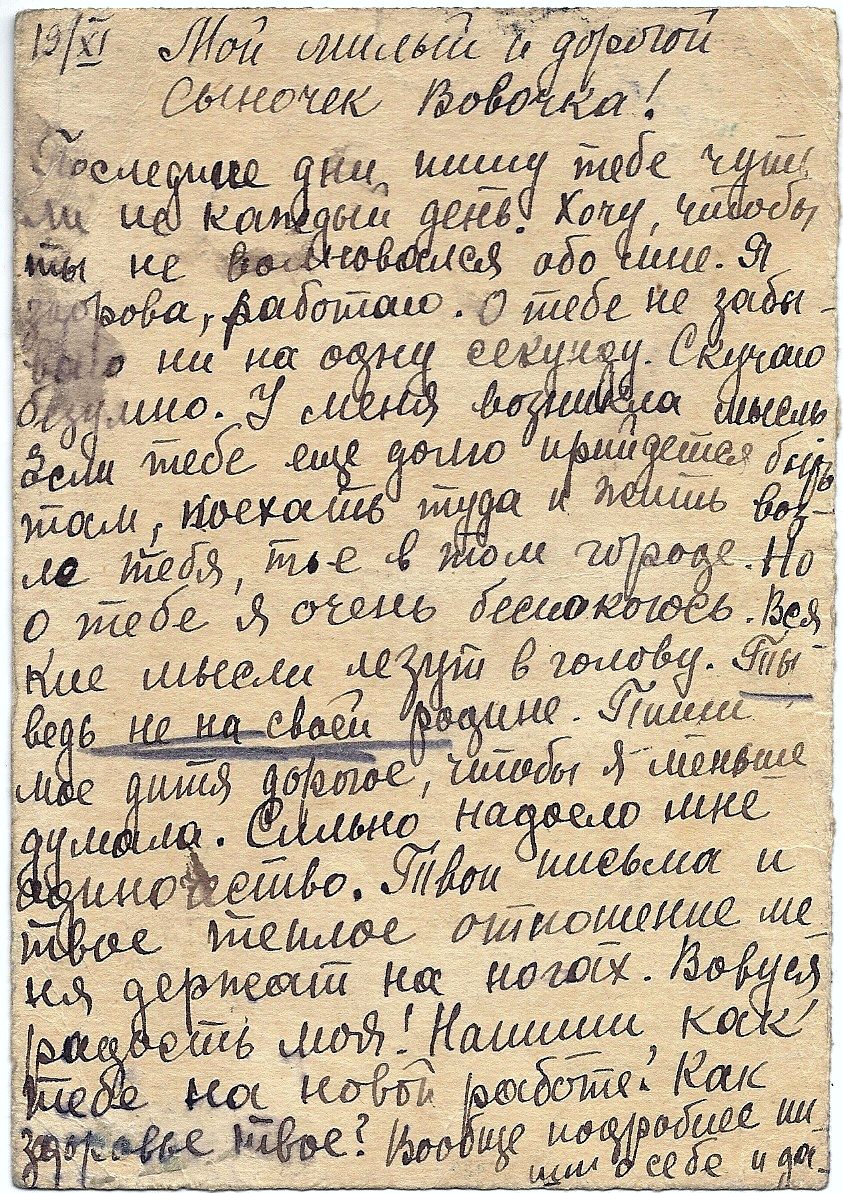 19/XI Мой милый и дорогой
сыночек Вовочка!
Последние дни пишу тебе чуть
ли не каждый день. Хочу, чтобы
ты не волновался обо мне. Я
здорова, работаю. О тебе не забы-
ваю ни на одну секунду. Скучаю
безумно. У меня возникла мысль
Если тебе еще долго прийдется быть
там, поехать туда и жить воз-
ле тебя, т-е в том городе. Но
о тебе я очень беспокоюсь. Вся
кие мысли лезут в голову. Ты
ведь не на своей родине. Пиши
мое дитя дорогое, чтобы я меньше
думала. Сильно надоело мне
одиночество. Твои письма и
твое теплое отношение ме
ня держат на ногах. Вовуся
радость моя! Напиши, как
тебе на новой работе? Как
здоровье твое? Вообще подробнее пи-
ши о себе и да-